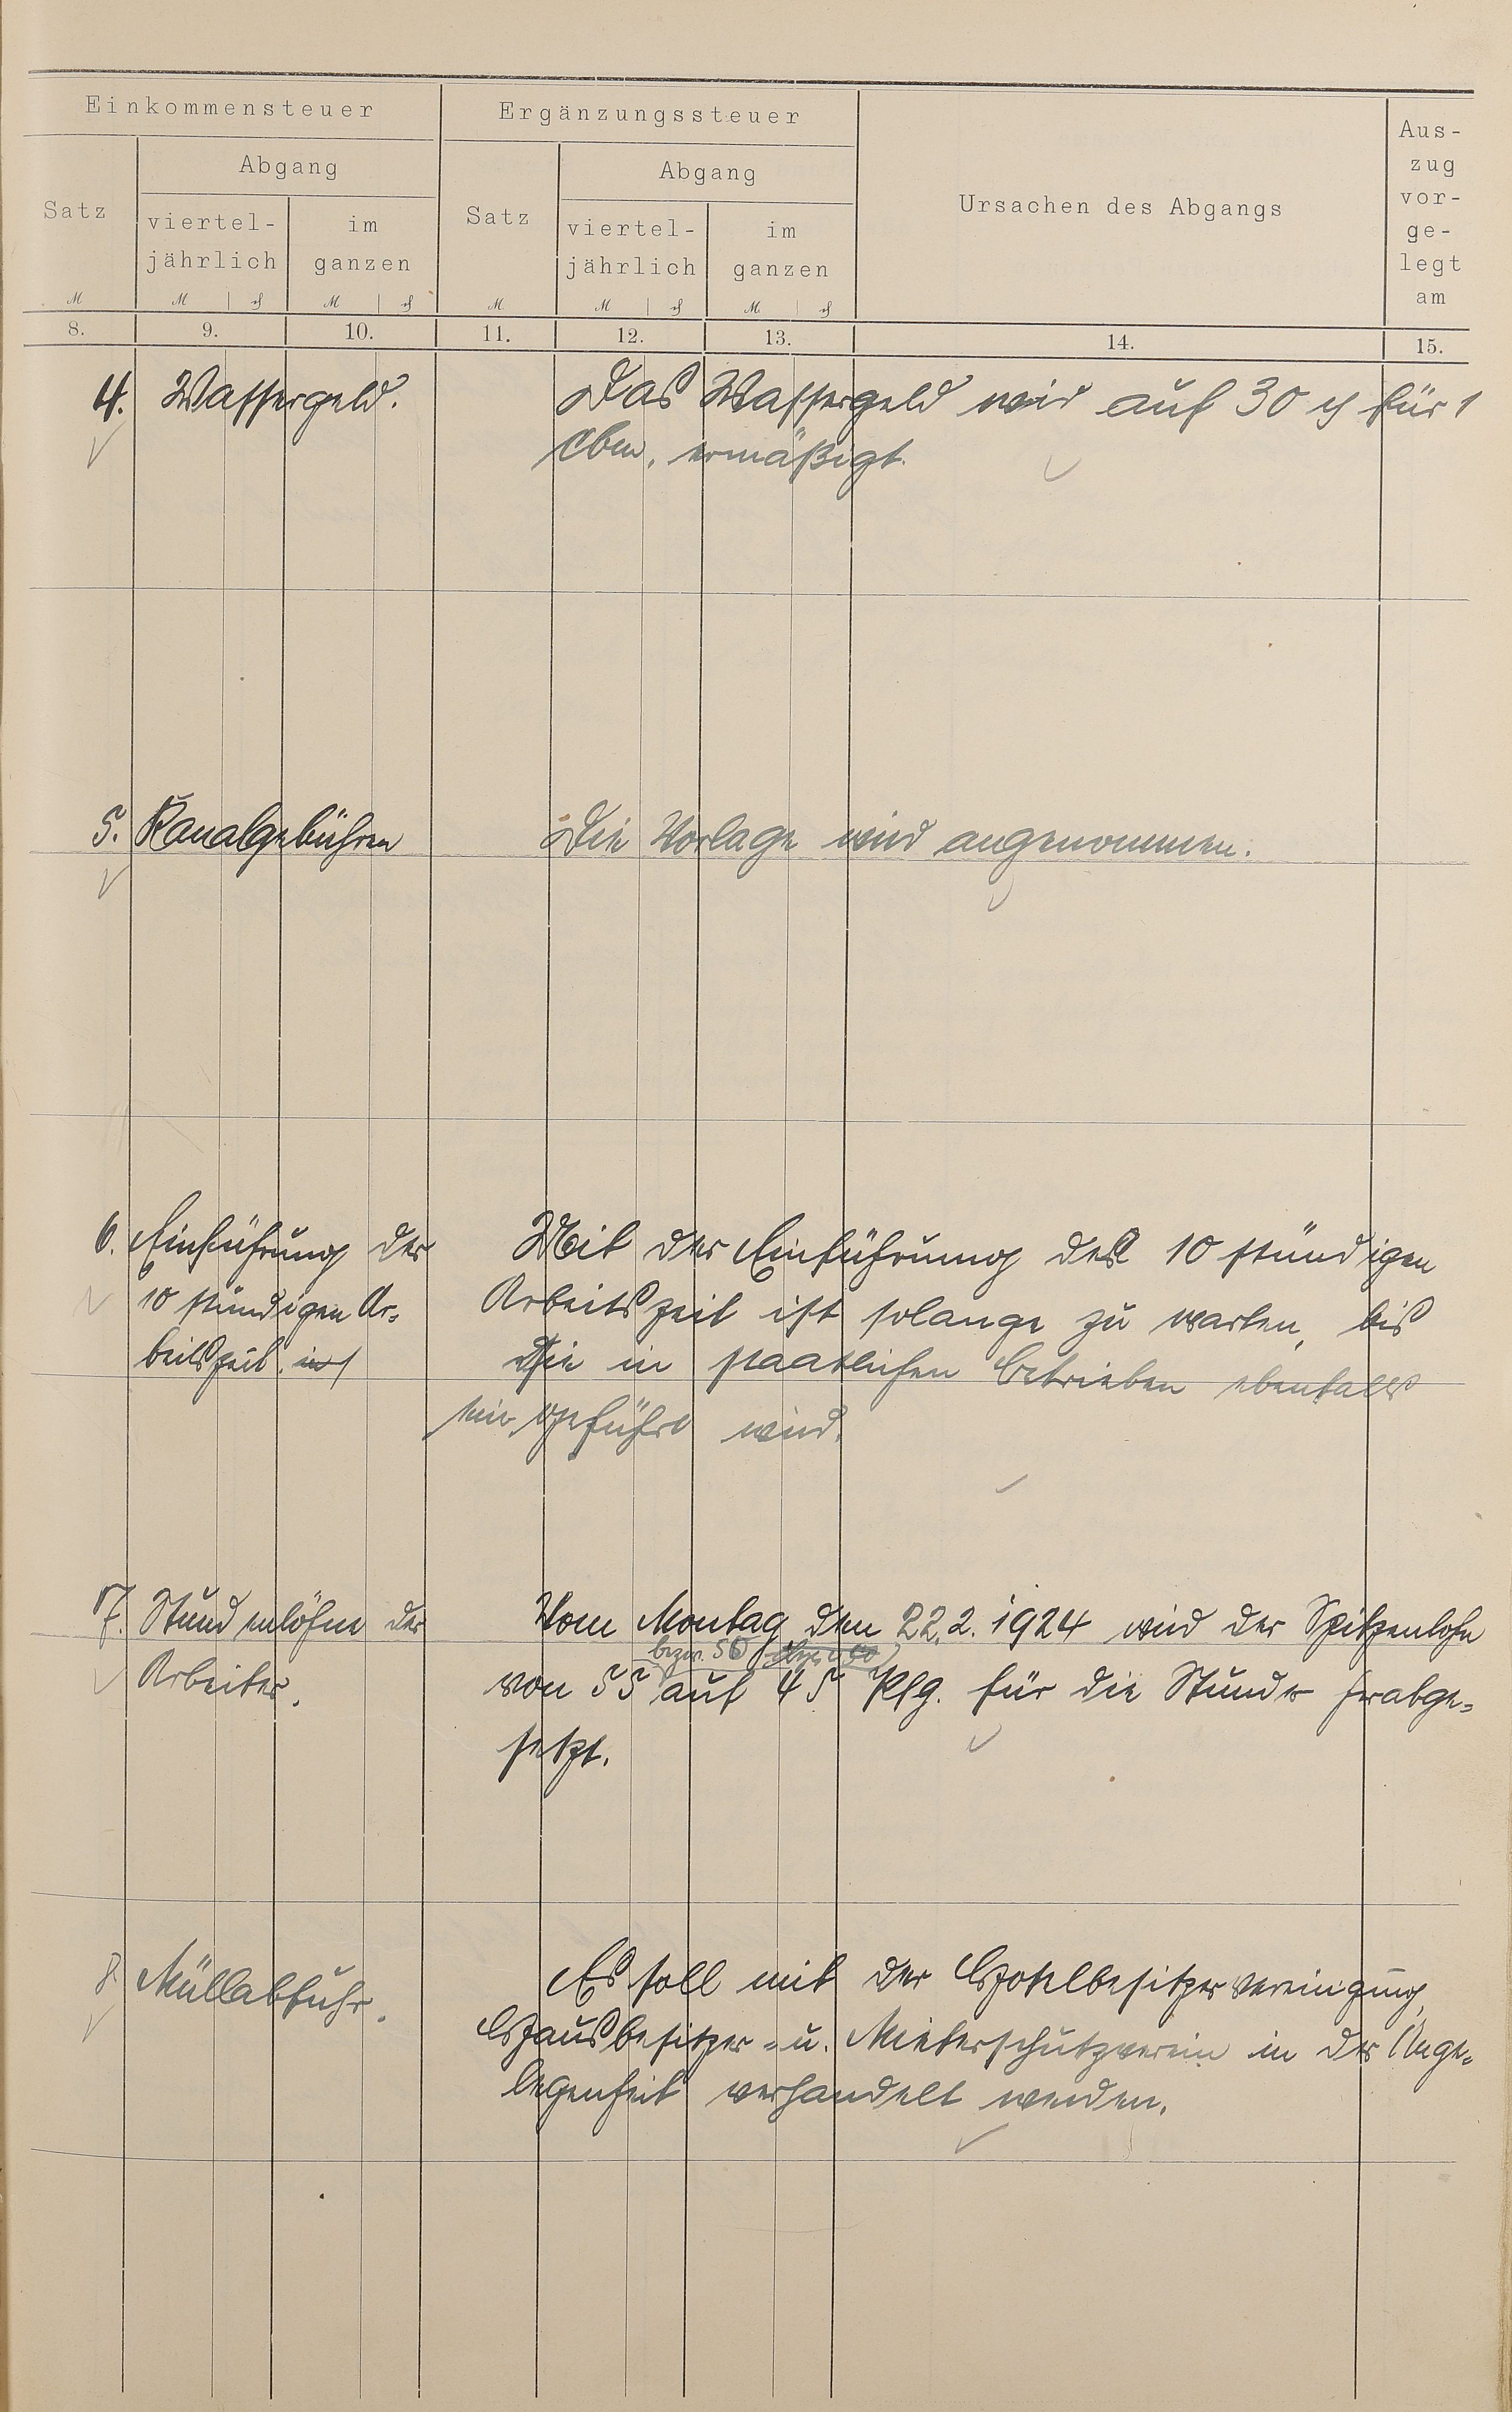 Einkommensteuer
Ergänzungssteuer
Satz
Abgang
viertel-
jährlich
im
ganzen
Satz
Abgang
viertel-
jährlich
im
ganzen
Ursachen des Abgangs
Aus-
zug
vor-
ge-
legt
am
8. 9. 10. 11. 12. 13. 14. 15.
4. Wassergeld.
Das Wassergeld wird auf 30 ₰ für 1
cbm. ermäßigt.
5. Kanalgebühren
Die Vorlage wird angenommen.
6. Einführung der
10 stündigen Ar-
beitszeit.
Mit der Einführung der 10 stündigen
Arbeitszeit ist solange zu warten, bis
sie in staatlichen Betrieben ebenfalls
eingeführt wird.
7. Stundenlöhne der
Arbeiter.
Vom Montag den 22.2.1924 wird der Spitzenlohn
bezw. 50
von 55 auf 45 Pfg. für die Stunde herabge-
setzt.
8. Müllabfuhr.
Es soll mit der Hotelbesitzervereinigung,
Hausbesitzer- u. Mieterschutzverein in der Ange-
legenheit verhandelt werden.